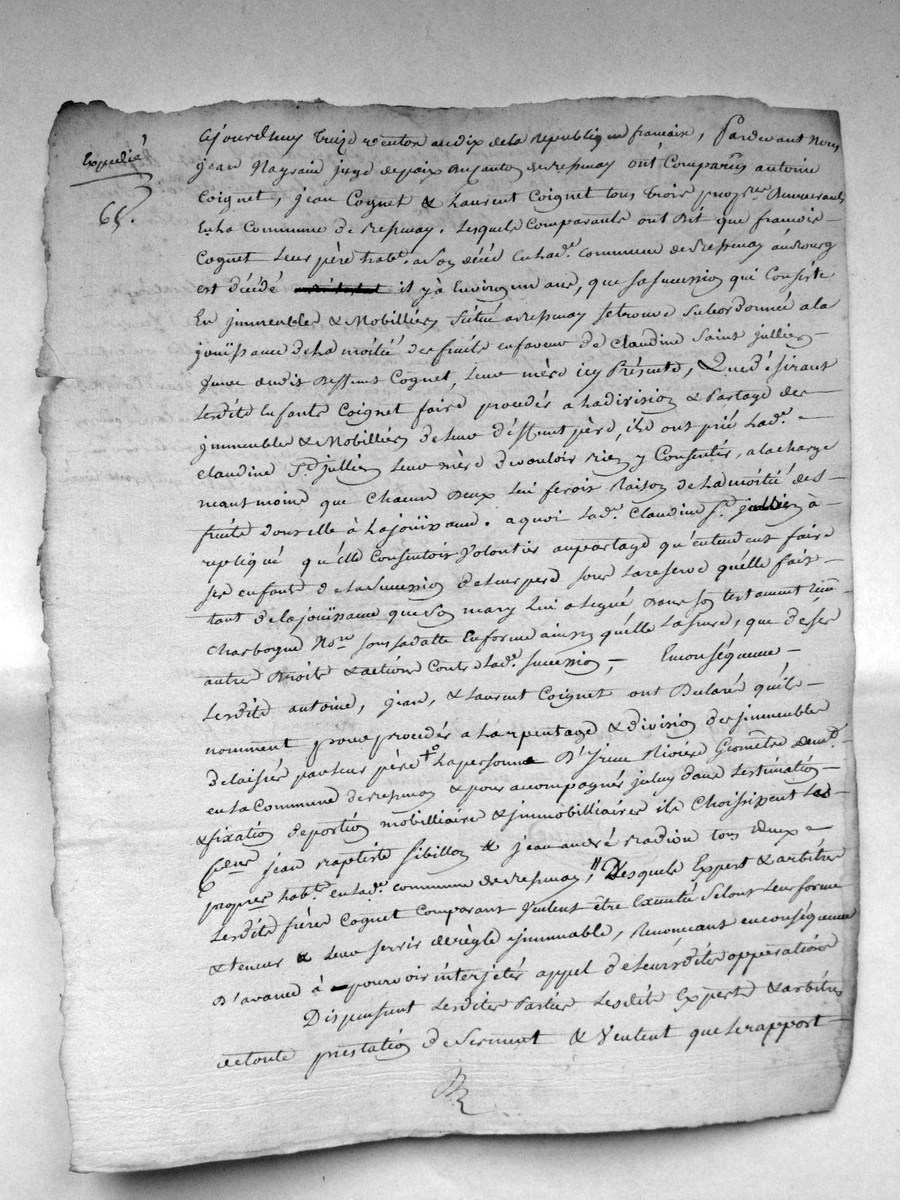 Expedié
68.
Cejourdhuy treize ventose an dix de la republique francaise, Pardevant Nous
jean juge de paix du canton de ont Comparus antoine
Coignet, jean Cognet & Laurent Coignet tous trois prop.res Demeurants
En la Commune de . Lesquels Comparants ont Dit que francois
Cognet Leur père habt. a son décéd en lad.e commune de au Bourg
est décédé il y a Environ un ans, que sa sucession qui Consiste
En immeubles & Mobilliers Situé a se trouve subordonnée a la
jouissance de La moitié des fruits en faveur de Claudine Saint jullien
veuve dudit Deffunt Cognet, Leur mère icy Présente, Que désirant
Lesdits Enfants Coignet faire procedér a La division & Partage des
immeubles & Mobilliers de leur déffunt père, ils ont prié Lad.e
Claudine St. jullien Leur mère de vouloir bien y Consentir, a la charge
neantmoins que Chacun deux lui feroit Raison de La moitié des
fruits dont elle à La jouissance. a quoi Lad.e Claudine St. jullien à
repliqué qu'elle Consentoit Volontiers au partage qu'entendent faire
ses enfants de la sucession de leur père sous La reserve qu'elle fait
tant de la jouissance que son mary lui a legué dans son testament
Charbogne No.re sous sa datte En forme ainsi qu'elle Lassure, que de ses
autres Droits & actions Contre Lad.e sucession, En conséquence
Lesdits antoine, jean, & Laurent Coignet ont Declaré qu'ils
nomment pour procedér a L'arpentage & division des immeubles
délaissés par leur père La personne D' Rivière Géomètre
en La Commune de & pour acompagnér jceluy dans L'estimation
& fixation de portion mobilliaire & immobilliaire ils Choisissent Les
jean Baptiste Sibillon & jean andré tous deux
propres habts. en lad.e commune de , Desquels Expert & arbitres
Lesdits frères Cognet Comparant Veulent être Executté Selont Leur forme
& teneur & Leur servir de règle immuable, Renoncant en conséquence
D'avance à pourvoir interjetér appel de Leursdites opperations
Dispensent Lesdites Parties Lesdits Experts & arbitres
de toute préstation de Serment & Veulent que Le rapport